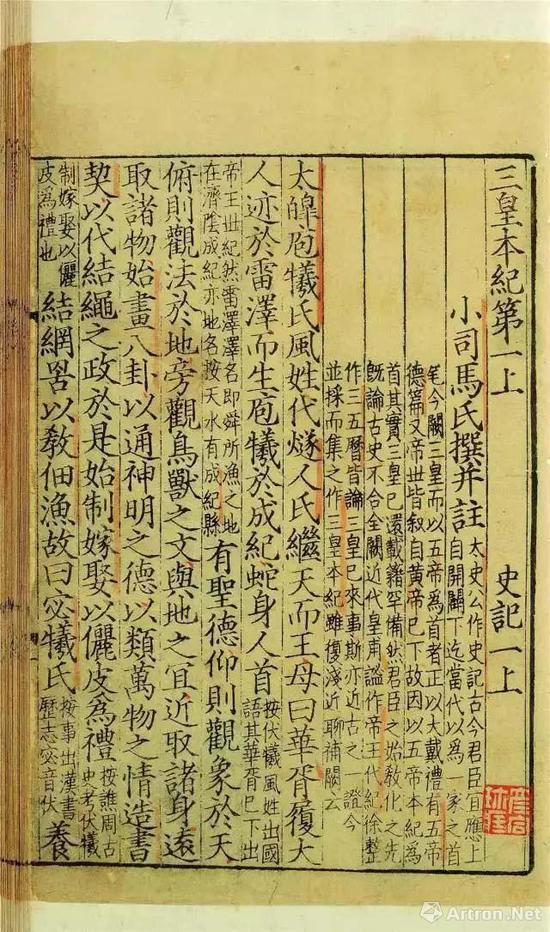 三皇本紀第一上 史記一上
小司馬氏撰并註
太史公作史記古今君臣宜應上
自開闢下迄當代以爲一家之首
今闕三皇而以五帝爲首者正以大戴禮有五帝
德篇又帝世皆叙自黃帝已下故因以五帝本紀爲
首其實三皇已還載籍罕備然君臣之始教化之先
既論古史不合全闕近代皇甫謐作帝王代紀徐整
作三五曆皆論三皇已來事斯亦近古之一證今
並採而集之作三皇本紀雖復淺近聊補闕云
太皥庖犧氏風姓代燧人氏繼天而王母曰華胥履大
人迹於雷澤而生庖犧於成紀蛇身人首
按伏犧風姓出國
語其華胥已下出
帝王世紀然雷澤澤名即舜所漁之地
在濟陰成紀亦地名按天水有成紀縣
有聖德仰則觀象於天
俯則觀法於地旁觀鳥獸之文與地之宜近取諸身遠
取諸物始畫八卦以通神明之德以類萬物之情造書
契以代結繩之政於是始制嫁娶以儷皮爲禮
按譙周古
史考伏犧
制嫁娶以儷
皮爲禮也
結網罟以教佃漁故曰宓犧氏
按事出漢書
歷志宓音伏
養
Artron.Net